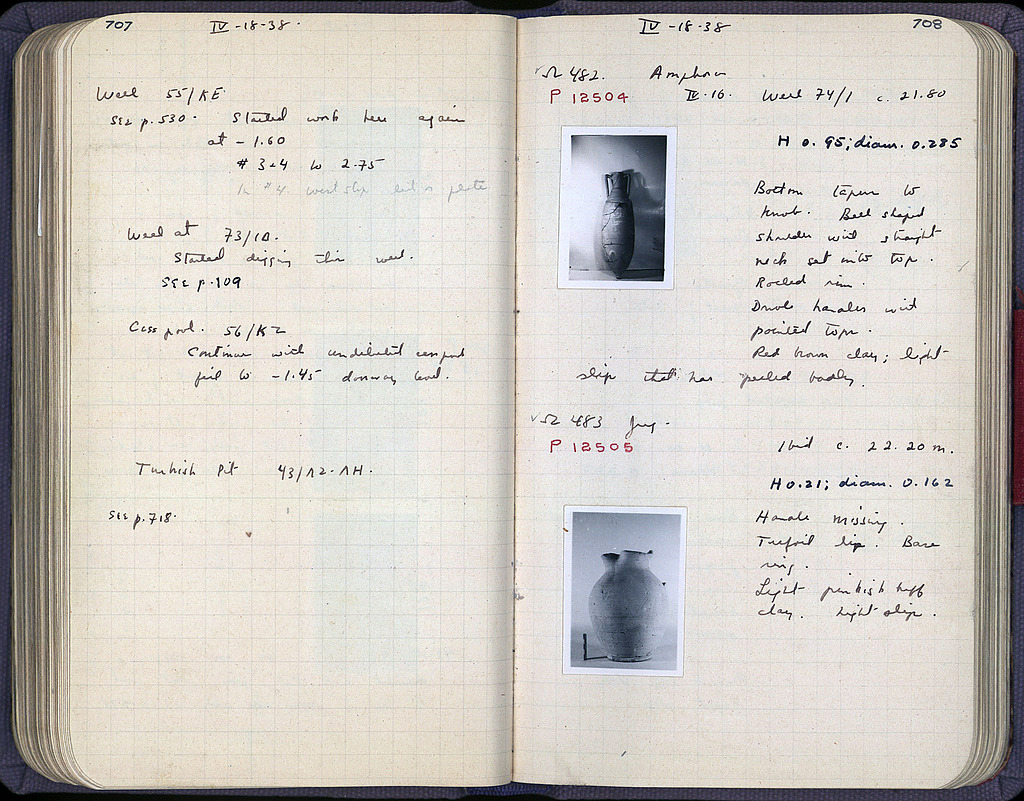 707
IV -18-38.
Well 55/KE
See p. 530. Started work here again
at - 1.60
# 3+4 to 2.75
In #4
Well at 73/ΙΑ.
Started digging this well.
See p. 109
Cess pool. 56/ΚΖ
Continue with undiluted cesspool
fill to -1.45 doorway level.
Turkish Pit 43/ΛΖ-ΛΗ.
See p. 718.
IV -18-38
708
√Ω 482. Amphora
P 12504 IV-16. Well 74/Ι c. 21.80
H 0.95; diam. 0.285
Bottom tapers to
knob. Bell shaped
shoulder with straight
neck set into top.
Rolled rim.
Double handles with
pointed tops.
Red brown clay; light
slip that has peeled badly.
√Ω 483 Jug.
P 12505 Ibid c. 22.20 m.
H 0.21; diam. 0.162
Handle missing.
Trefoil lip. Base
ring.
Light pinkish buff
clay. Light slip.